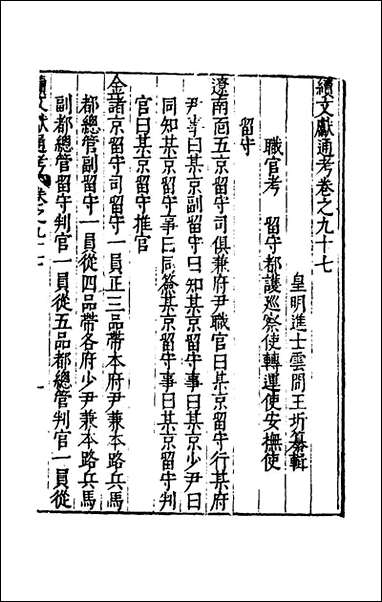 續文獻通考卷之九十七
皇明進士雲間王圻纂輯
職官考　留守都護巡察使轉運使安撫使
留守
遼南面五京留守司俱兼府尹職官曰某京留守行某府
尹事曰某京副留守曰知某京留守事曰某府少尹曰
同知某京留守事曰同簽某京留守事曰某京留守判
官曰某京留守推官
金諸京留守司留守一員正三品帶本府尹兼本路兵馬
都總管副留守一員從四品帶各府少尹兼本路兵馬
副都總管留守判官一員從五品都總管判官一員從
續文獻通考 卷之九十七 一